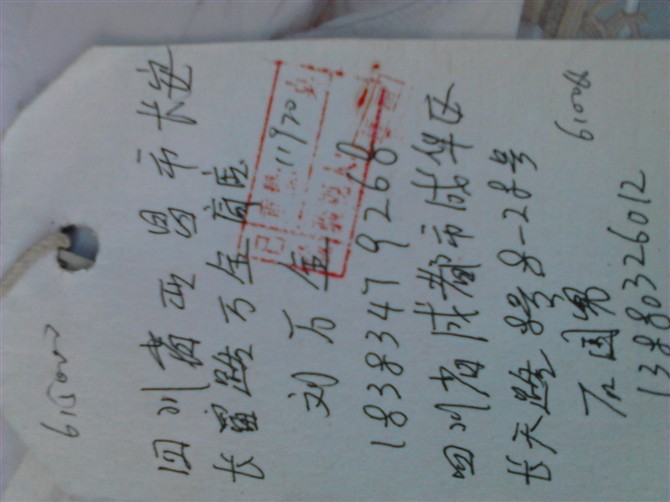 615000
四川省西昌市长安
长富路万金商店
刘万金
18383479268
四川省成都市成华区
长天路8号8-28号
石国勇
13880326012
610028
已
11920